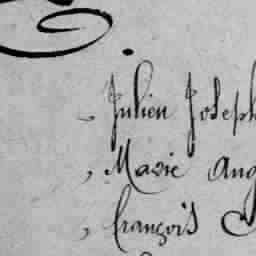 , Julien Joseph
, Marie Ang
, françois